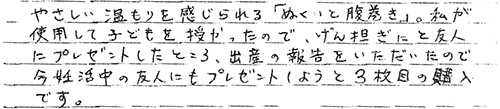 やさしい温もりを感じられる「ぬくいと腹巻き」。私が
使用して子どもを授かったので、げん担ぎにと友人
にプレゼントしたところ、出産の報告をいただいたので
今妊活中の友人にもプレゼントしようと3枚目の購入
です。